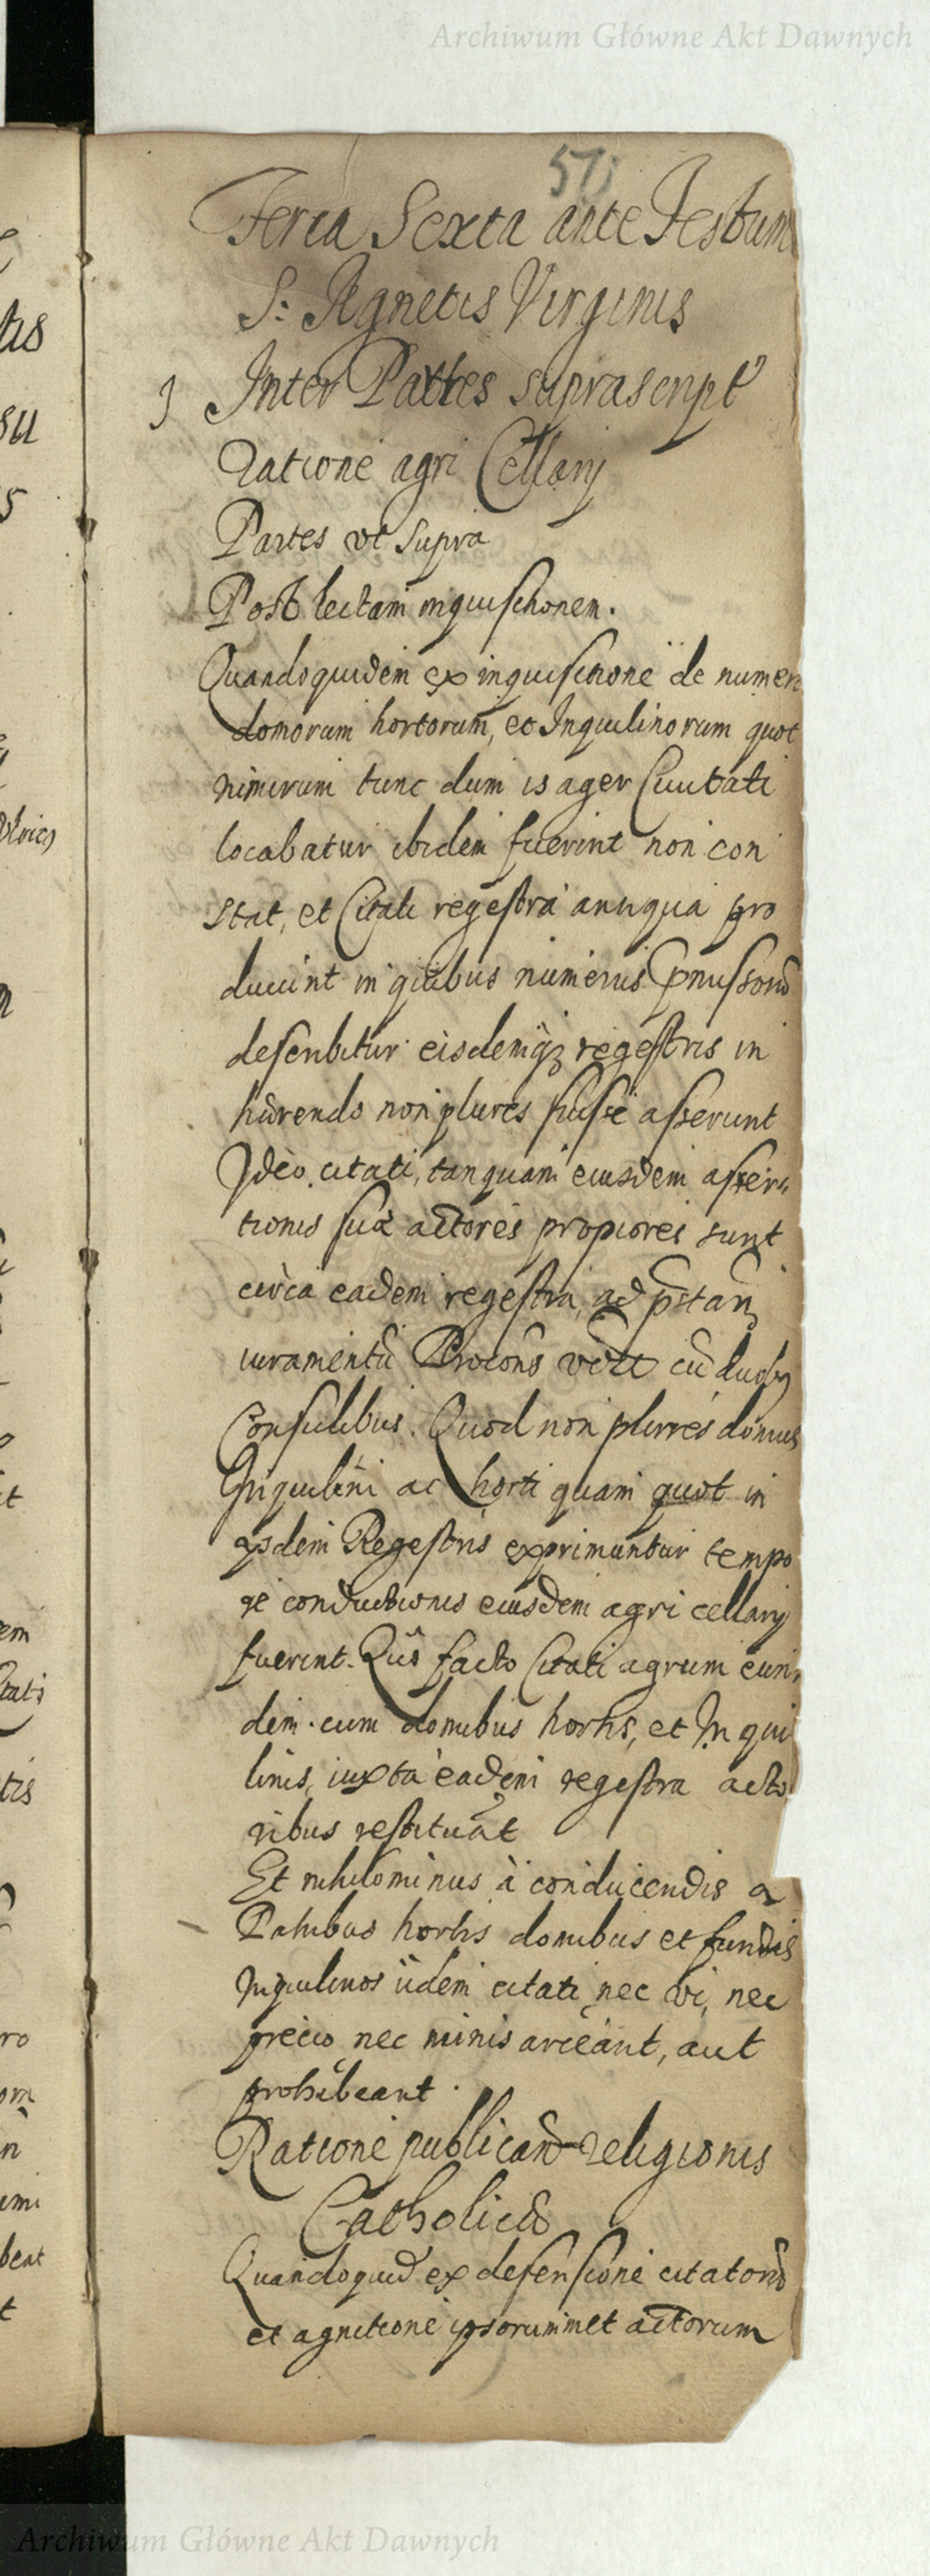 Archiwum Główne Akt Dawnych
57
Feria Sexta ante Festum
S: Agnetis Virginis
Inter Partes suprascript
Ratione agri Cellarij
Partes vt supra
Post lectam inquisitionem.
Quandoquidem ex inquisitione de numero
domorum hortorum, et Inquilinorum quot
nimirum tunc dum is ager Ciuitati
locabatur ibidem fuerint non con
stat, et Citati regestra antiqua pro
ducunt in quibus numerus
describitur eisdemq regestris in
hærendo non plures fuisse asserunt
Ideo citati, tanquam eiusdem asser
tionis suæ actores propiores sunt
circa eadem regestra, ad pstan
iuramentū Procons cū duobq
Consulibus. Quod non plures domus
Inquilini ac horti quam quot in
ijsdem Regestris exprimuntur tempo
re conductionis eiusdem agri cellarij
fuerint. Quo facto Citati agrum eun
dem cum domibus hortis, et Inqui
linis, iuxta eadem regestra acto
ribus restituāt
Et nihilominus à conducendis a
Patribus hortis domibus et fundis
Inquilinos ijdem citati nec vi, nec
precio nec minis arceant, aut
prohibeant.
Ratione publicand religionis
Catholicæ
Quandoquid ex defensione citatorū
et agnitione ipsorummet actorum
tis
su
s
em
tis
ro
om
n
beat
t
Archiwum Główne Akt Dawnych